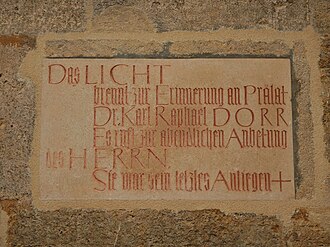 Das LICHT
brennt zur Erinnerung an Prälat
Dr. Karl Raphael DORR
Es ruft zur abendlichen Anbetung
des HERRN.
Sie war sein letztes Anliegen +